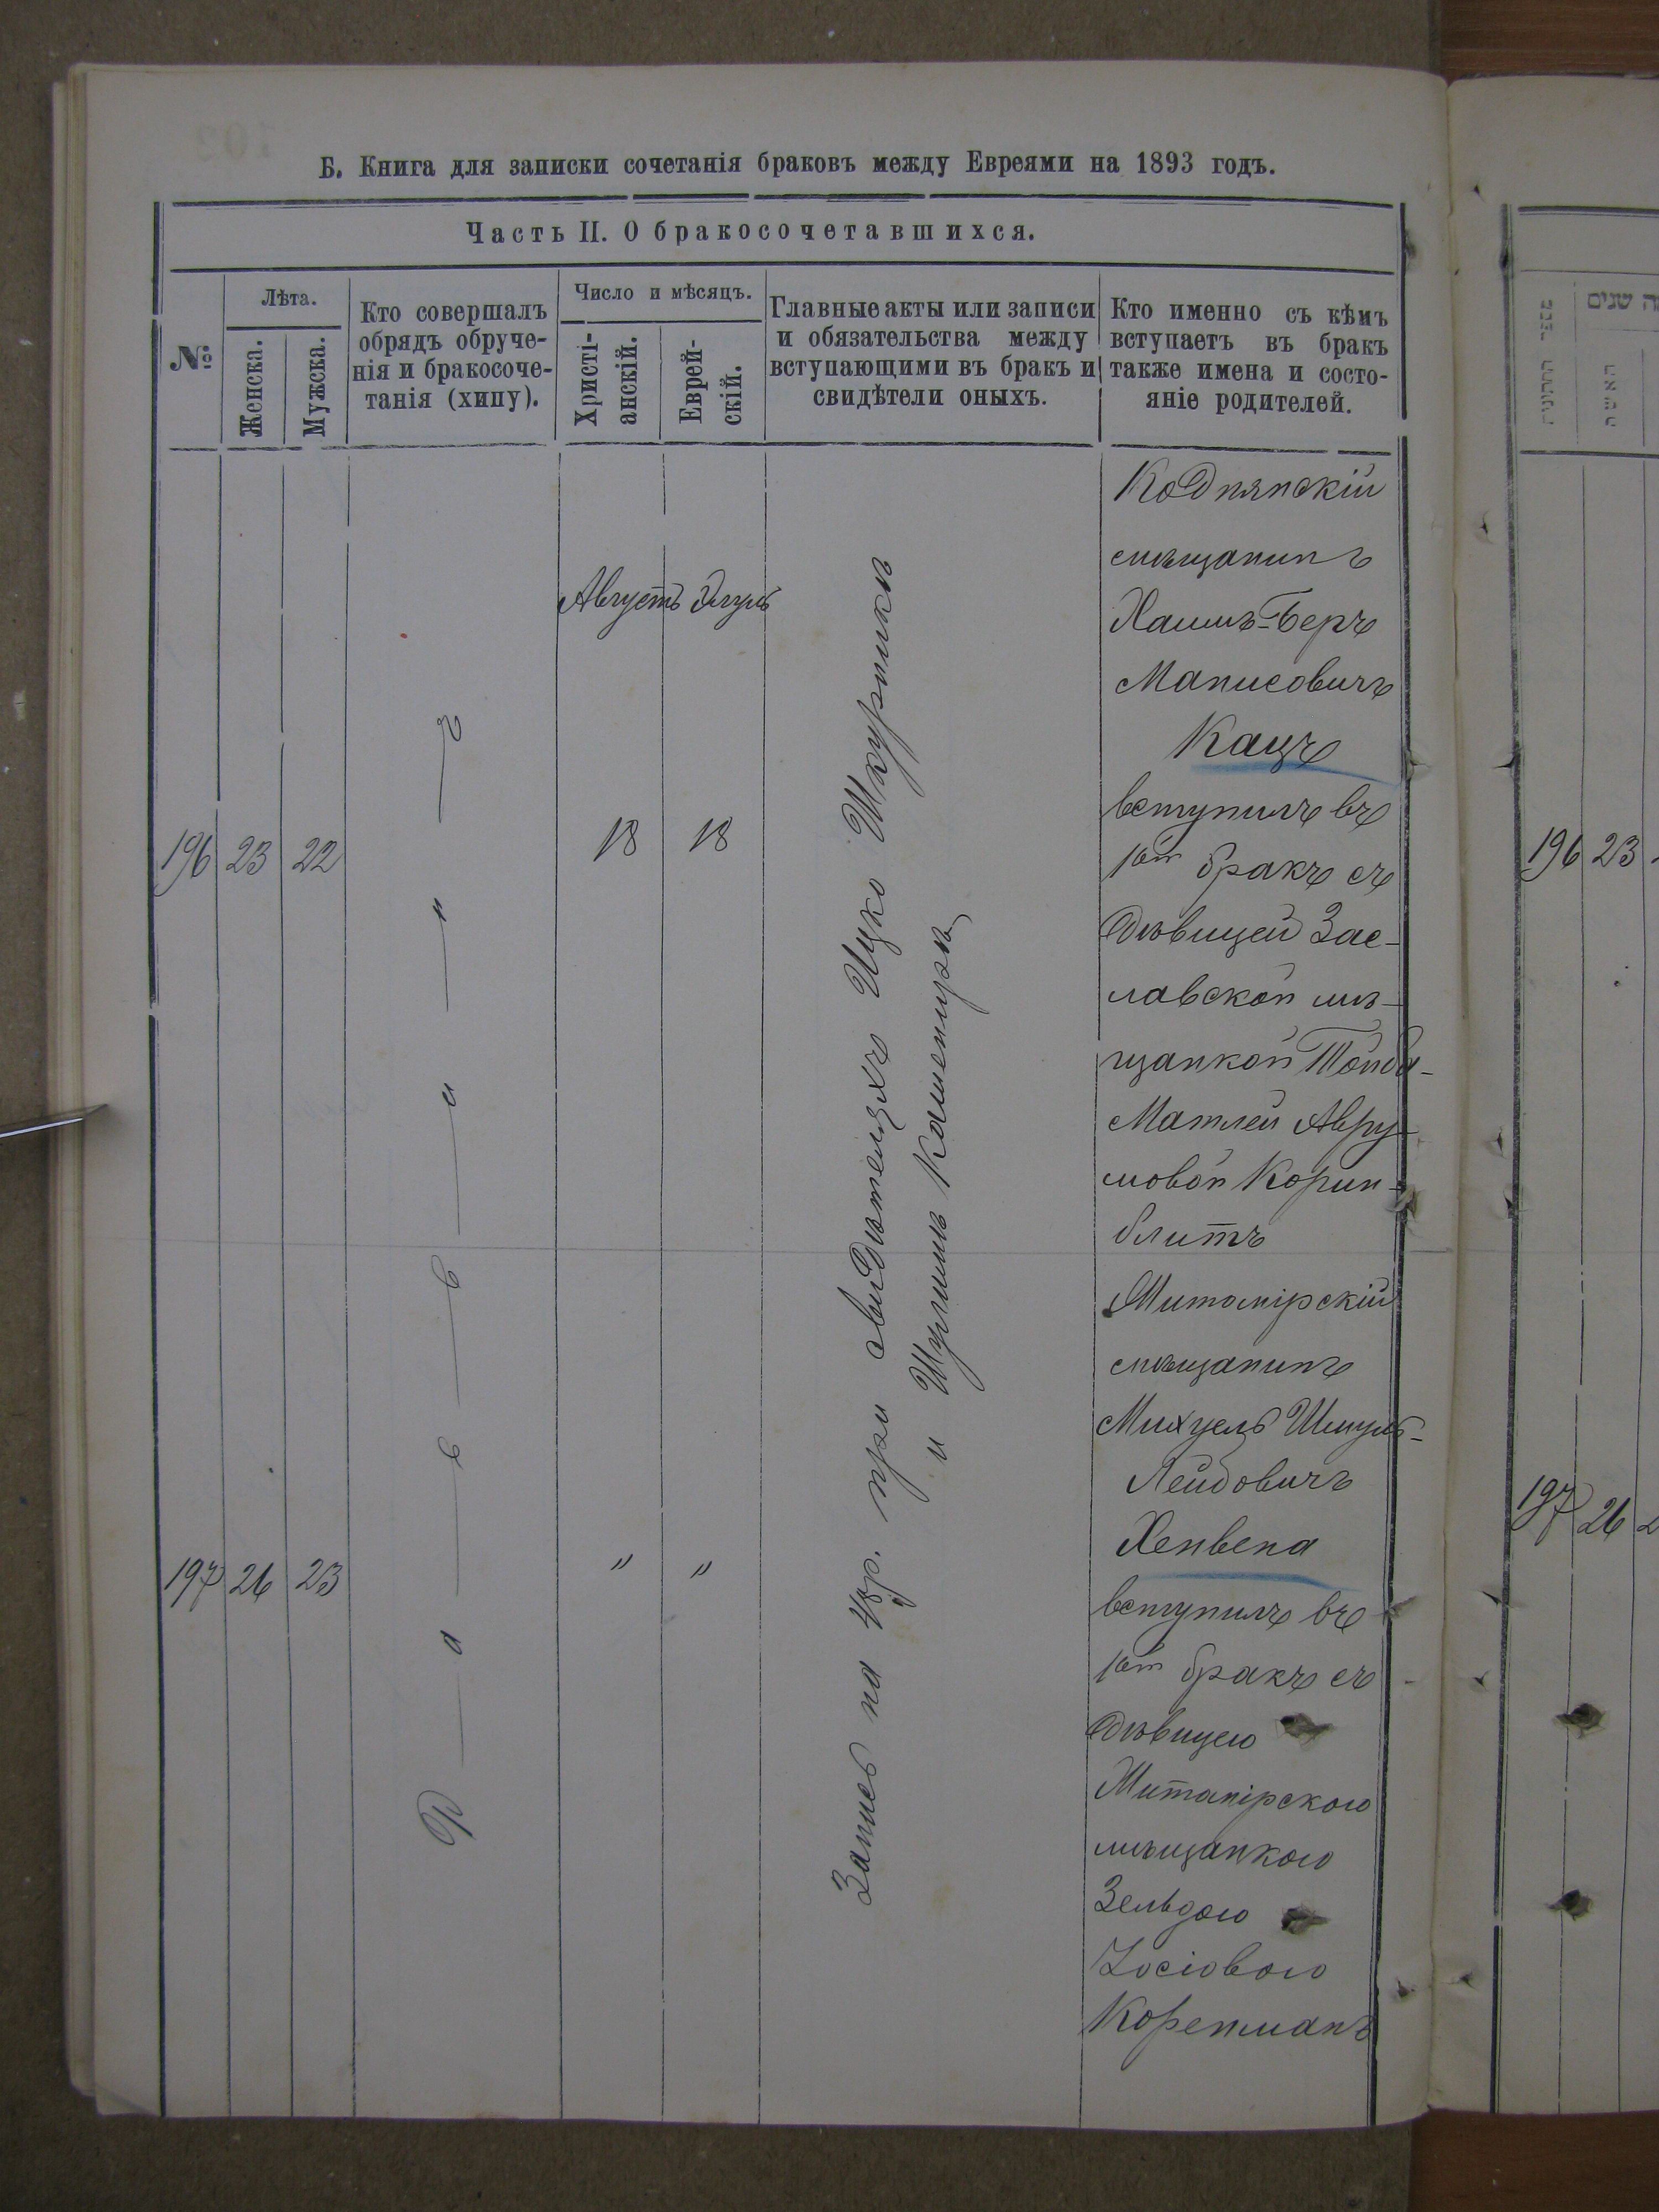 Б. Книга для записки сочетанія браковъ между Евреями на 1893 годъ.
Часть II. О бракосочетавшихся.
№
Лѣта.
Женска.
Мужска.
Кто совершалъ
обрядъ обруче-
нія и бракосоче-
танія (хипу).
Число и мѣсяцъ.
Христі-
анскій.
Еврей-
скій.
Главные акты или записи
и обязательства между
вступающими въ бракъ и
свидѣтели оныхъ.
Кто именно съ кѣмъ
вступаетъ въ бракъ
также имена и состо-
яніе родителей.
Августъ Элулъ
196 23 22
18 18
Р а в в и н ъ
Запись на 48р. при свидѣтеляхъ Ицко Шкурникъ
и Шулимъ Каменицкъ
Коднянскій
мѣщанинъ
Хаимъ-Беръ
Манисовичъ
Кацъ
вступилъ въ
1ый бракъ съ
дѣвицей Зас-
лавской мѣ-
щанкой Тойба-
Матлей Авру-
мовой Корин-
блитъ
197 26 23
" "
Житомірскій
мѣщанинъ
Михуель Шмуль-
Лейбовичъ
Хенвена
вступилъ въ
1ый бракъ съ
дѣвицею
Житомірскою
мѣщанкою
Зельдою
Іосіовою
Коренманъ
האשה
196 23
197 26 2